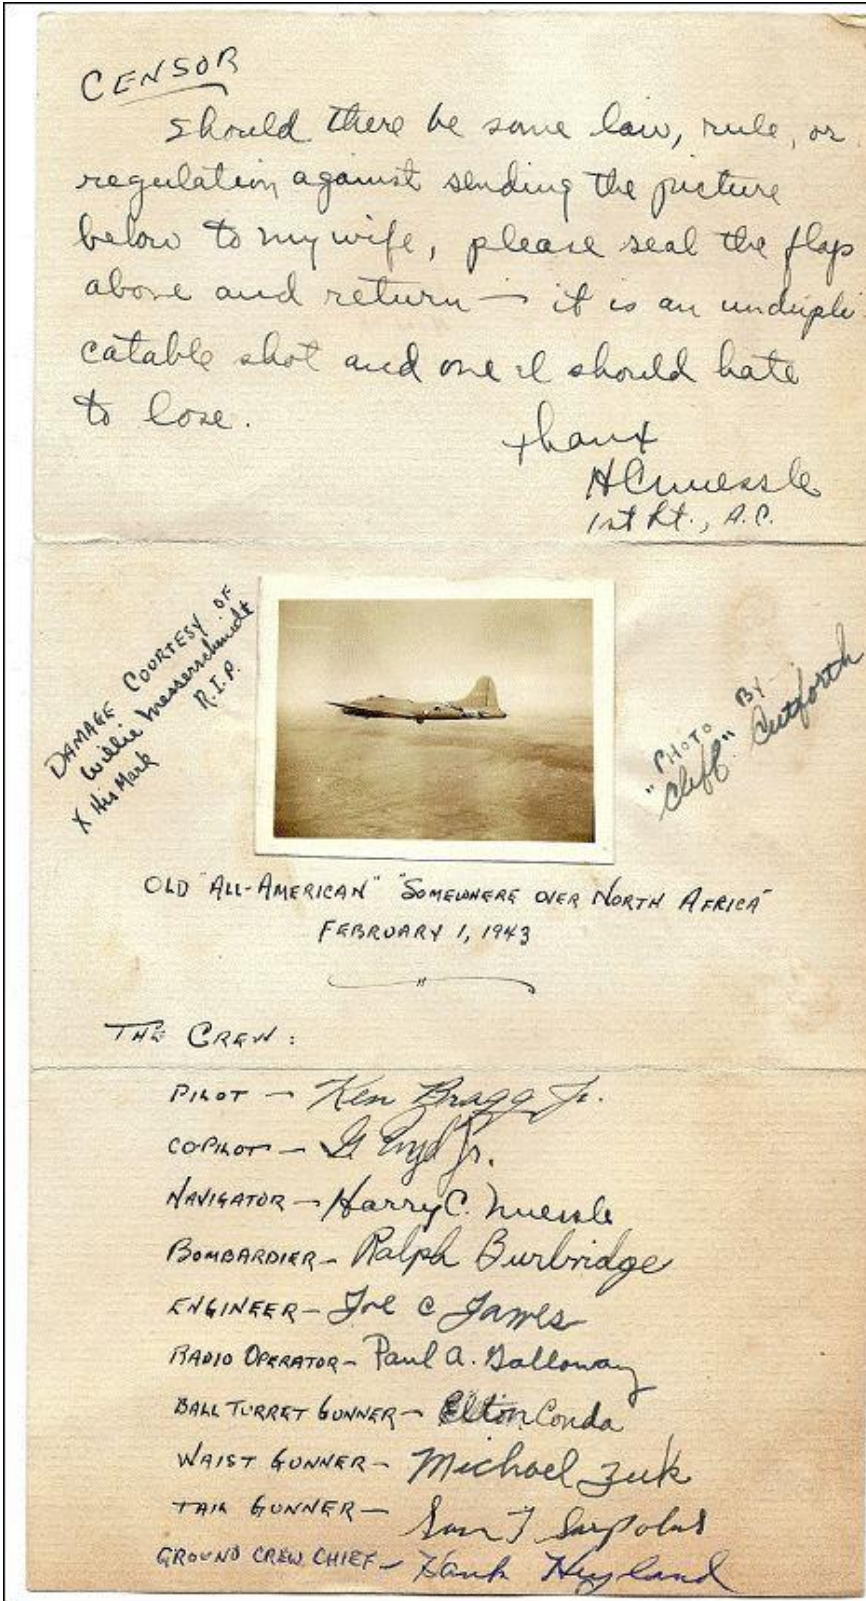 CENSOR
Should there be some law, rule, or
regulation against sending the picture
below to my wife, please seal the flap
above and return — it is an undupli
catable shot and one I should hate
to lose.
thanx
HCNuessle
1st Lt., A.C.
DAMAGE COURTESY OF
Willie Messerschmidt
R.I.P.
X His Mark
"PHOTO BY
"Cliff" Cutforth
OLD "ALL-AMERICAN" "SOMEWHERE OVER NORTH AFRICA"
FEBRUARY 1, 1943
THE CREW:
PILOT — Ken Bragg Jr.
COPILOT — G Engel Jr.
NAVIGATOR — Harry C. Nuessle
BOMBARDIER — Ralph Burbridge
ENGINEER — Joe C James
RADIO OPERATOR — Paul A. Galloway
BALL TURRET GUNNER — Elton Conda
WAIST GUNNER — Michael Zuk
TAIL GUNNER — Sam T Sarpolus
GROUND CREW CHIEF — Hank Hyland